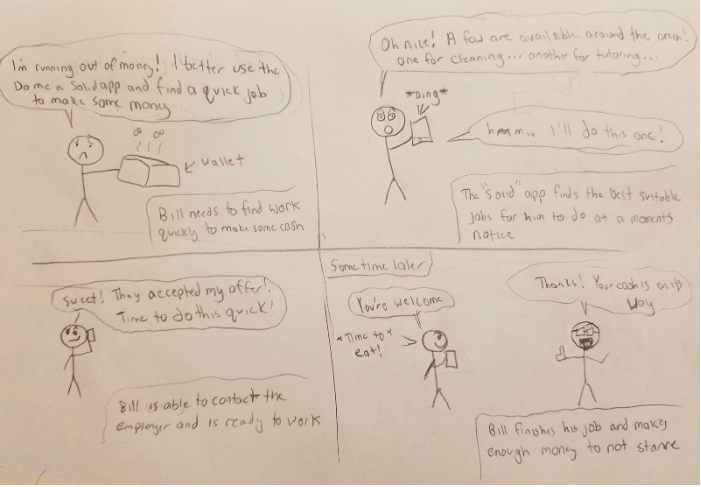 I'm running out of money! I better use the
Do me a Solid app and find a quick job
to make some money
wallet
Bill needs to find work
quickly to make some cash
Oh nice! A few are available around the area!
one for cleaning... another for tutoring...
*Ding*
hmmm... I'll do this one!
The "Solid" app finds the best suitable
jobs for him to do at a moments
notice
Sweet! They accepted my offer!
Time to do this quick!
Bill is able to contact the
employer and is ready to work
Sometime later
You're welcome
*Time to*
eat!
Thanks! Your cash is on its
way
Bill finishes his job and makes
enough money to not starve